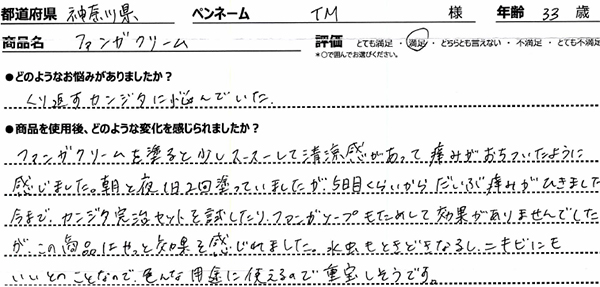 都道府県 神奈川県 ペンネーム TM 様 年齢 33 歳
商品名 ファンガクリーム 評価 とても満足・満足・どちらとも言えない・不満足・とても不満足
*○で囲んでお選びください。
●どのようなお悩みがありましたか?
くり返すカンジタに悩んでいた.
●商品を使用後、どのような変化を感じられましたか?
ファンガクリームを塗ると少しスースーして清涼感があって痒みがおちついたように
感じました。朝と夜1日2回塗っていましたが、5日目くらいからだいぶ痒みがひきました
今まで、カンジタ完治セットを試したり、ファンガソープもためして効果がありませんでした
が、この商品にやっと効果を感じれました。水虫もときどきなるし、ニキビにも
いいとのことなので、色んな用途に使えるので重宝しそうです。